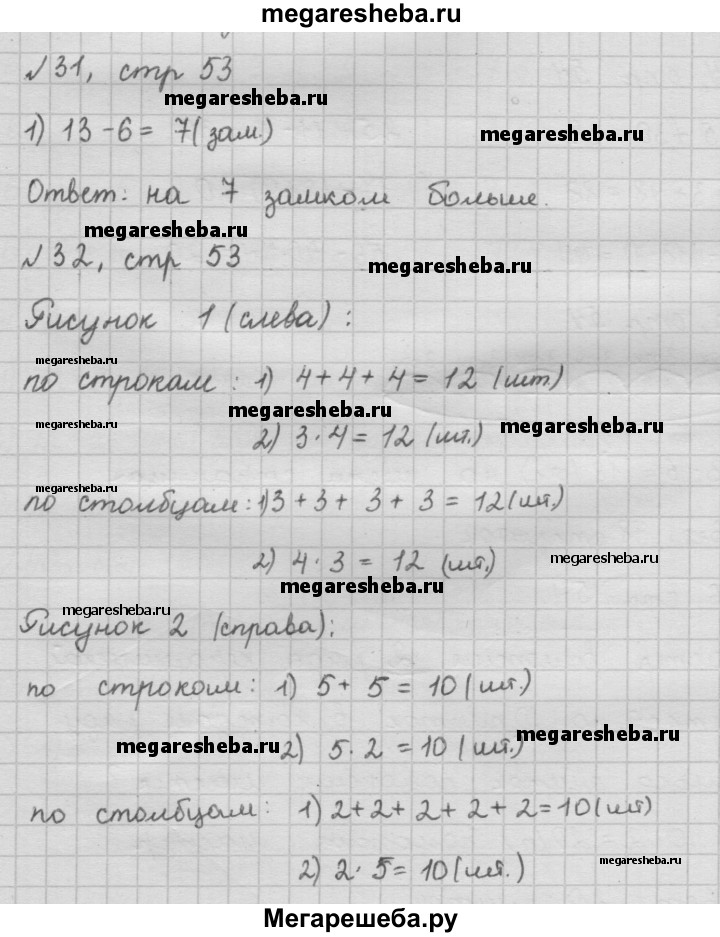 megaresheba.ru
№31, стр 53
megaresheba.ru
1) 13 - 6 = 7(зам.)
megaresheba.ru
Ответ: на 7 замком больше.
megaresheba.ru
№32, стр 53
megaresheba.ru
Рисунок 1 (слева):
megaresheba.ru
по строкам: 1) 4 + 4 + 4 = 12 (шт)
megaresheba.ru
megaresheba.ru
megaresheba.ru
2) 3 · 4 = 12 (шт.)
megaresheba.ru
по столбцам: 1) 3 + 3 + 3 + 3 = 12 (шт.)
2) 4 · 3 = 12 (шт.)
megaresheba.ru
megaresheba.ru
megaresheba.ru
Рисунок 2 (справа):
по строкам: 1) 5 + 5 = 10 (шт.)
megaresheba.ru
megaresheba.ru
2) 5 · 2 = 10 (шт.)
по столбцам: 1) 2 + 2 + 2 + 2 + 2 = 10 (шт)
megaresheba.ru
2) 2 · 5 = 10 (шт.)
Мегарешеба.ру